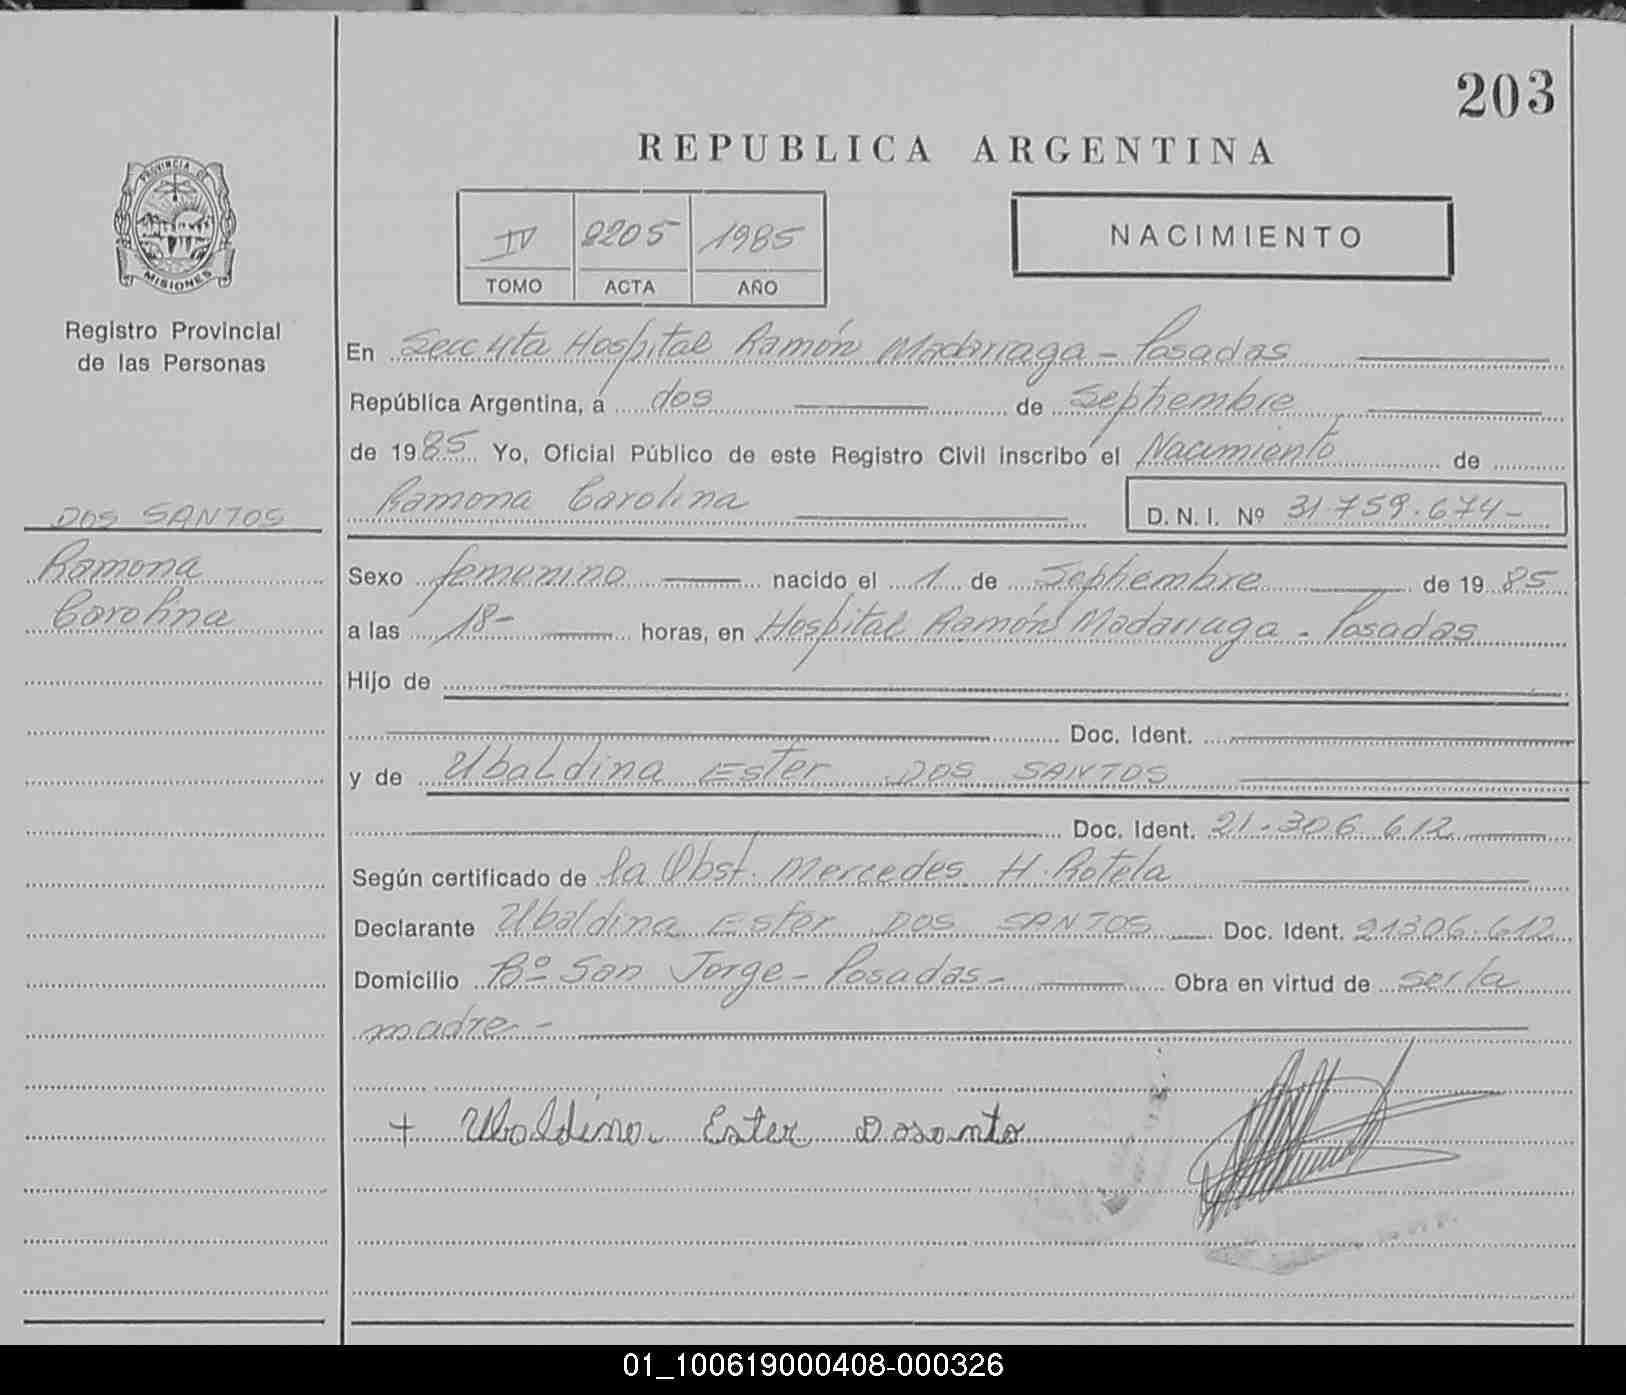 203
REPUBLICA ARGENTINA
PROVINCIA DE
MISIONES
Registro Provincial
de las Personas
IV 2205 1985
TOMO ACTA AÑO
NACIMIENTO
En Secc 4ta Hospital Ramón Madariaga - Posadas
República Argentina, a dos de Septiembre
de 1985 Yo, Oficial Público de este Registro Civil inscribo el Nacimiento de
Ramona Carolina
D. N. I. Nº 31.759.674-
DOS SANTOS
Ramona
Carolina
Sexo femenino nacido el 1 de Septiembre de 1985
a las 18- horas, en Hospital Ramón Madariaga - Posadas
Hijo de
Doc. Ident.
y de Ubaldina Ester DOS SANTOS
Doc. Ident. 21.306.612
Según certificado de la Obst. Mercedes H. Rotela
Declarante Ubaldina Ester DOS SANTOS Doc. Ident. 21306.612
Domicilio Bº San Jorge - Posadas - Obra en virtud de ser la
madre -
+ Ubaldina Ester Dosanto
01_100619000408-000326